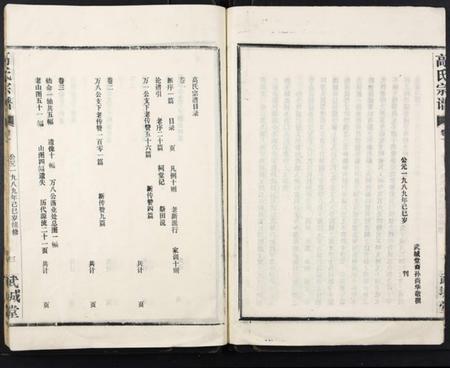 高氏宗谱
公元一九八九年己巳岁
武城堂裔孙尚华敬撰
刊
高氏宗谱目录
卷一
新序一篇 目录 页 凡例十则 老新派行 家训十则
论谱引 老序二十篇 祠堂记 祭田说
万一公支下老传赞五十六篇 新传赞四篇
共计 页
卷二
万八公支下老传赞一百零一篇 新传赞九篇
共计 页
卷三
诰命一轴共五幅 遗像十幅 万八公派业处总图一幅
老山图五十一幅 山图四幅遗失 历代源流二十一页 共计 页
高氏宗谱
公元一九八九年己巳岁续修
三
武城堂